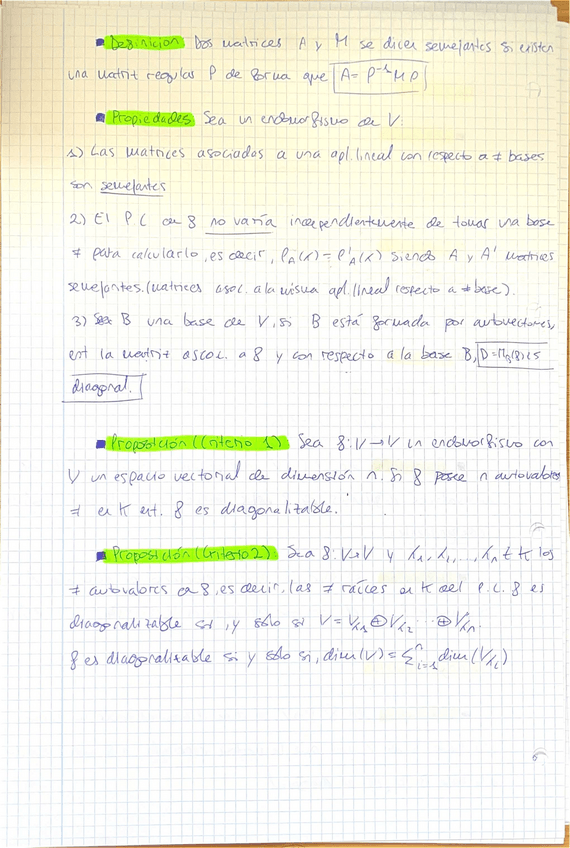 ▪ Definición Dos matrices A y M se dicen semejantes si existen
una matriz regular P de forma que A = P⁻¹MP
▪ Propiedades Sea un endomorfismo de V.
1) Las matrices asociados a una apl. lineal con respecto a ≠ bases
son semejantes
2) El P.C de f no varía independientemente de tomar una base
≠ para calcularlo, es decir, P_A(x) = P'_A(x) siendo A y A' matrices
semejantes. (matrices asoc. a la misma apl. lineal respecto a ≠ base).
3) Sea B una base de V, si B está formada por autovectores,
ent la matriz asoc. a f y con respecto a la base B, D = M_B(f) es
diagonal.
▪ Proposición (Criterio 1) Sea f: V → V un endomorfismo con
V un espacio vectorial de dimensión n. Si f posee n autovalores
≠ en K ent. f es diagonalizable.
▪ Proposición (Criterio 2) Sea f: V → V y λ₁, λ₂, ..., λₙ ∈ K los
≠ autovalores de f, es decir, las ≠ raíces en K del p.c. f es
diagonalizable si, y sólo si V = V_λ₁ ⊕ V_λ₂ ... ⊕ V_λₙ.
f es diagonalizable si y sólo si, dim(V) = Σⁿᵢ₌₁ dim(V_λᵢ)